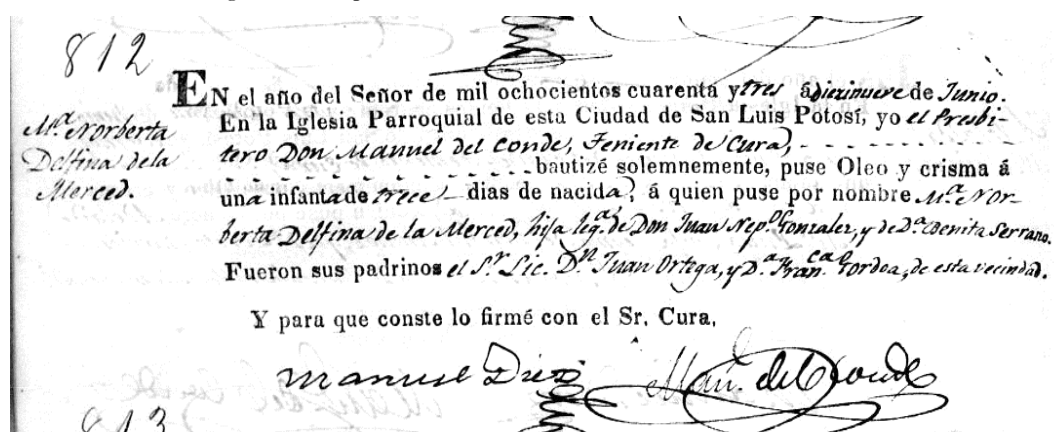 812
Mª. Norberta
Delfina de la
Merced.
EN el año del Señor de mil ochocientos cuarenta y tres á diezinueve de Junio.
En la Iglesia Parroquial de esta Ciudad de San Luis Potosí, yo el Presbi-
tero Don Manuel del Conde, Teniente de Cura,
bautizé solemnemente, puse Oleo y crisma á
una infanta de trece dias de nacida, á quien puse por nombre Mª. Nor-
berta Delfina de la Merced, hija legª. de Don Juan Nepº. Gonzalez, y de Dª. Benita Serrano.
Fueron sus padrinos el Sr. Lic. Dn. Juan Ortega, y Dª. Francª. Gordoa, de esta vecindad.
Y para que conste lo firmé con el Sr. Cura,
Manuel Diez
Man. del Conde
813